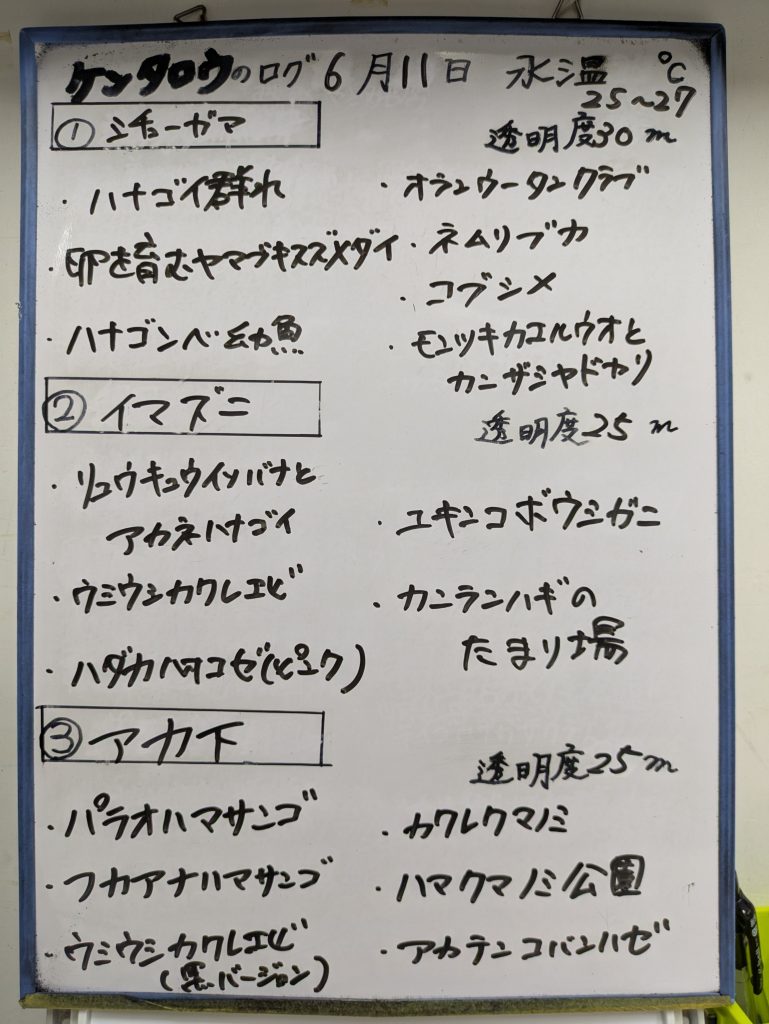 ケンタロウのログ 6月11日 水温 ℃
25〜27
① シチューガマ
透明度30m
・ハナゴイ群れ
・卵を育むヤマブキスズメダイ
・ハナゴンベ幼魚
・オランウータンクラブ
・ネムリブカ
・コブシメ
・モンツキカエルウオと
カンザシヤドカリ
② イマズニ
透明度25m
・リュウキュウイソバナと
アカネハナゴイ
・ウミウシカクレエビ
・ハダカハオコゼ(ピンク)
・ユキンコボウシガニ
・カンランハギの
たまり場
③ アカ下
透明度25m
・パラオハマサンゴ
・フカアナハマサンゴ
・ウミウシカクレエビ
(黒バージョン)
・カクレクマノミ
・ハマクマノミ公園
・アカテンコバンハゼ